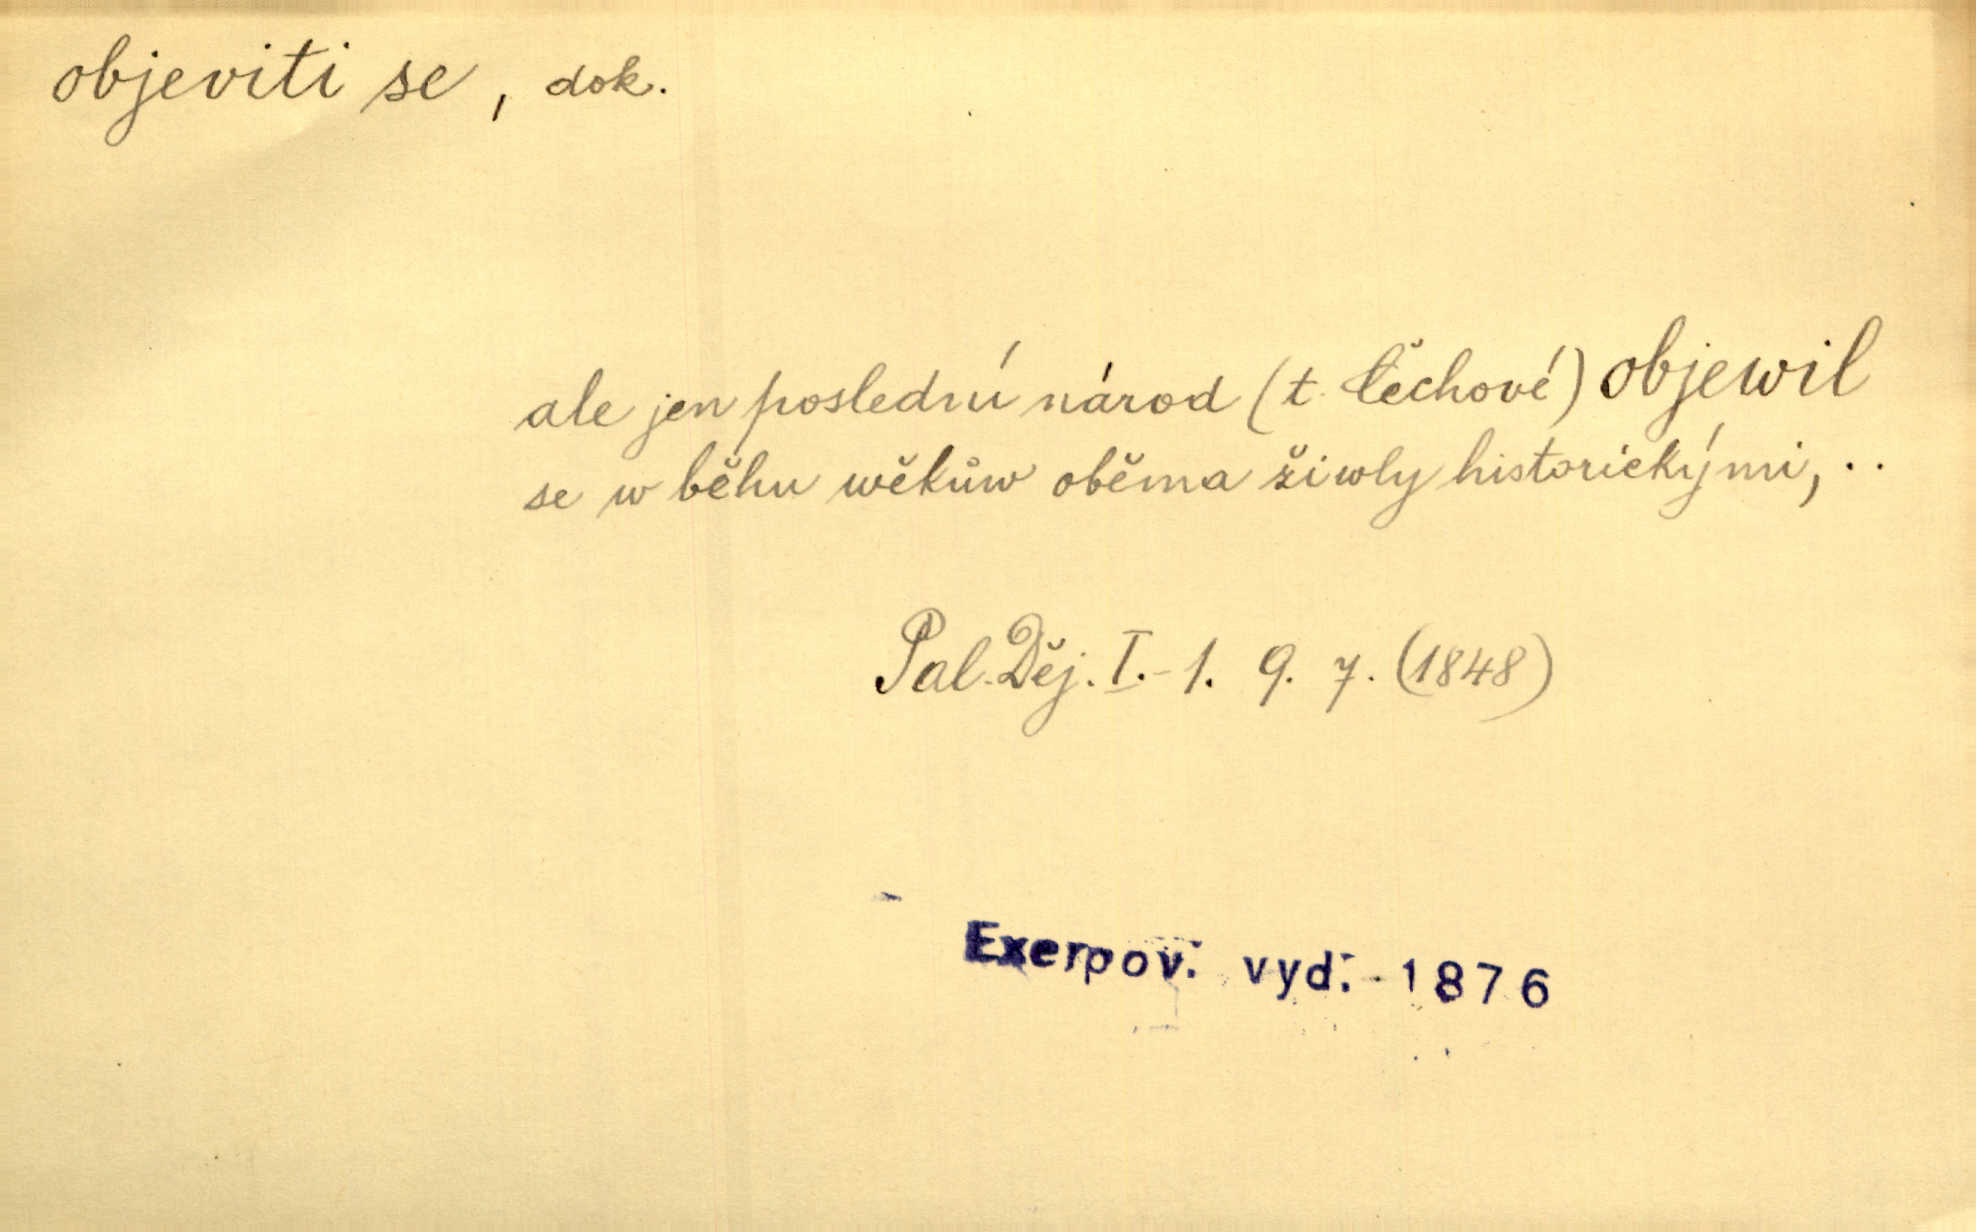 objeviti se, dok.
ale jen poslední národ (t. Čechové) objewil
se w běhu wěkůw oběma žiwly historickými, ..
Pal. Děj. I.-1. 9. 7. (1848)
Exerpov. vyd. - 1876